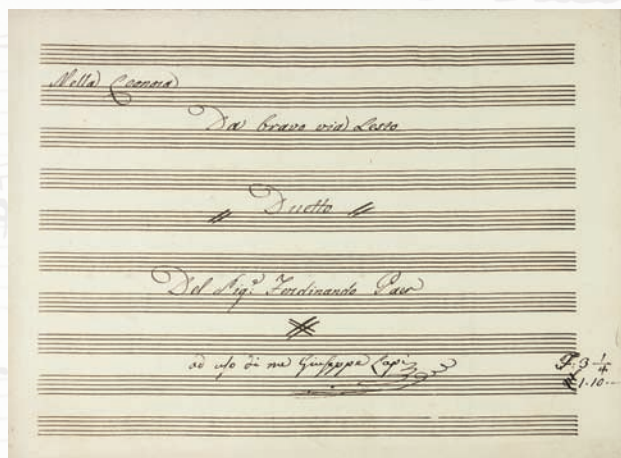 Nella Leonora
Da bravo via Lesto
Duetto
Del Sig.r Ferdinando Paer
ad uso di me Giuseppe Lapi
F. 3 1/4
1.10